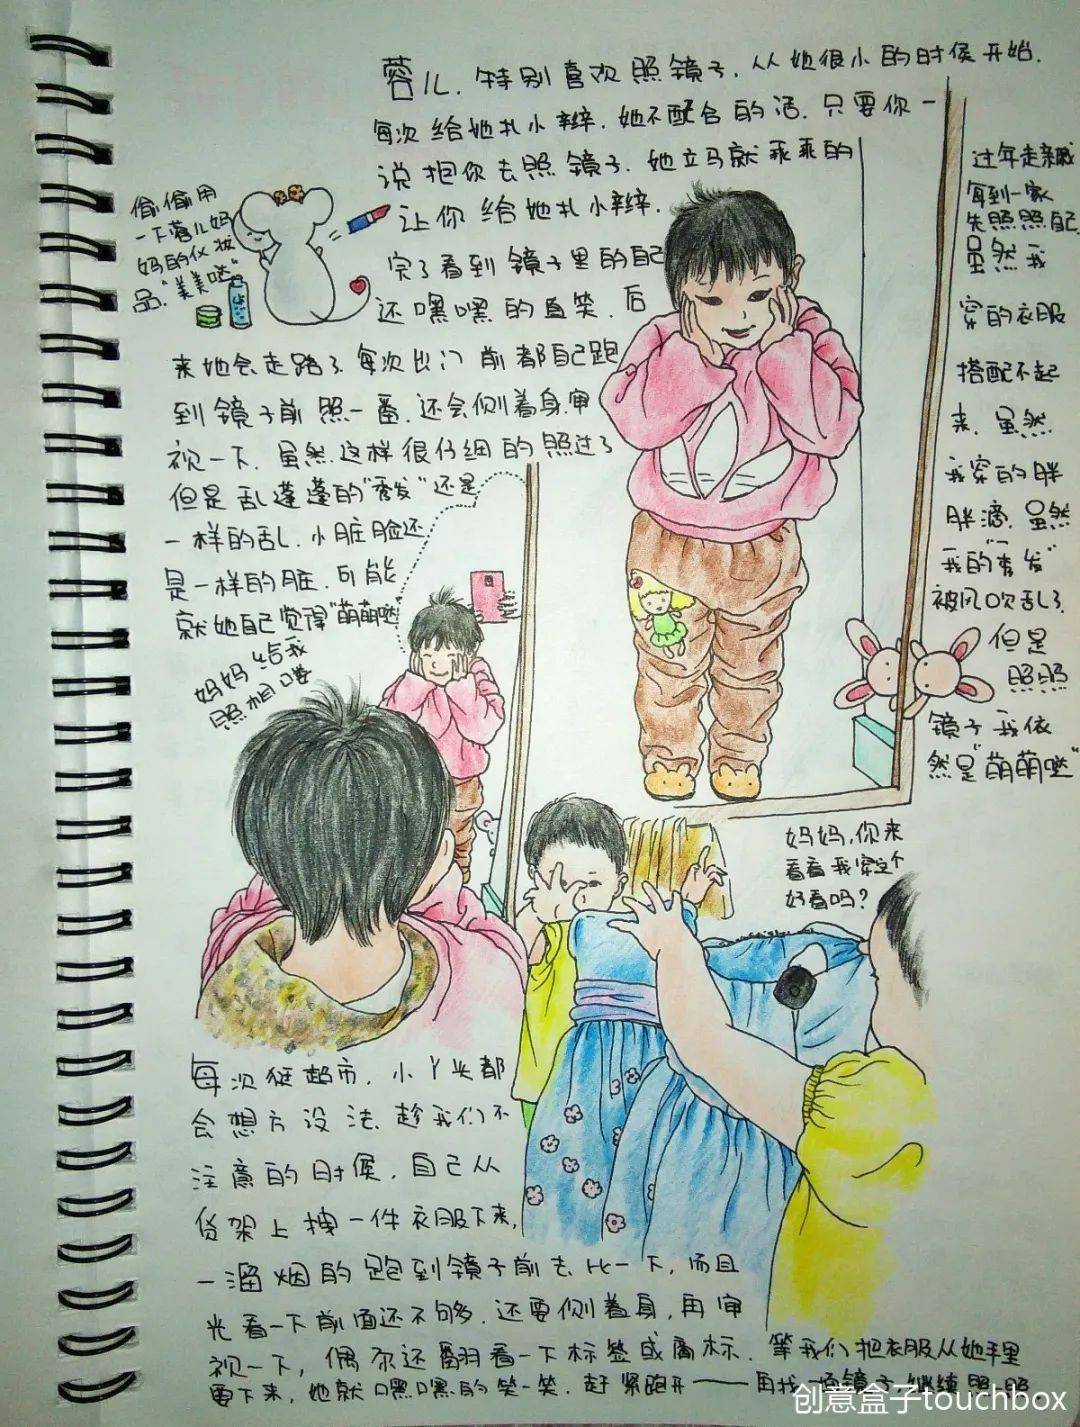 蓉儿.特别喜欢照镜子.从她很小的时候开始.
每次给她扎小辫.她不配合的话.只要你一
说抱你去照镜子.她立马就乖乖的
让你给她扎小辫.
完了看到镜子里的自己
还嘿嘿的直笑.后
来她会走路了.每次出门前都自己跑
到镜子前照一番.还会侧着身.审
视一下.虽然这样很仔细的照过了
但是乱蓬蓬的"秀发"还是
一样的乱.小脏脸还
是一样的脏.可能
就她自己觉得"萌萌哒"
偷偷用
一下蓉儿妈
妈的化妆
品."美美哒"
过年走亲戚
每到一家
先照照自己.
虽然我
穿的衣服
搭配不起
来.虽然
我穿的胖
胖滴.虽然
我的"秀发"
被风吹乱了.
但是
照照
镜子我依
然是"萌萌哒"
妈妈给我
照相喽
妈妈,你来
看看我穿这个
好看吗?
每次逛超市,小丫头都
会想方设法.趁我们不
注意的时候,自己从
货架上拽一件衣服下来,
一溜烟的跑到镜子前去比一下,而且
光看一下前面还不够.还要侧着身,再审
视一下,偶尔还翻看一下标签或商标.等我们把衣服从她手里
要下来,她就嘿嘿的笑一笑.赶紧跑开——再找一场镜子继续照.照.
创意盒子touchbox